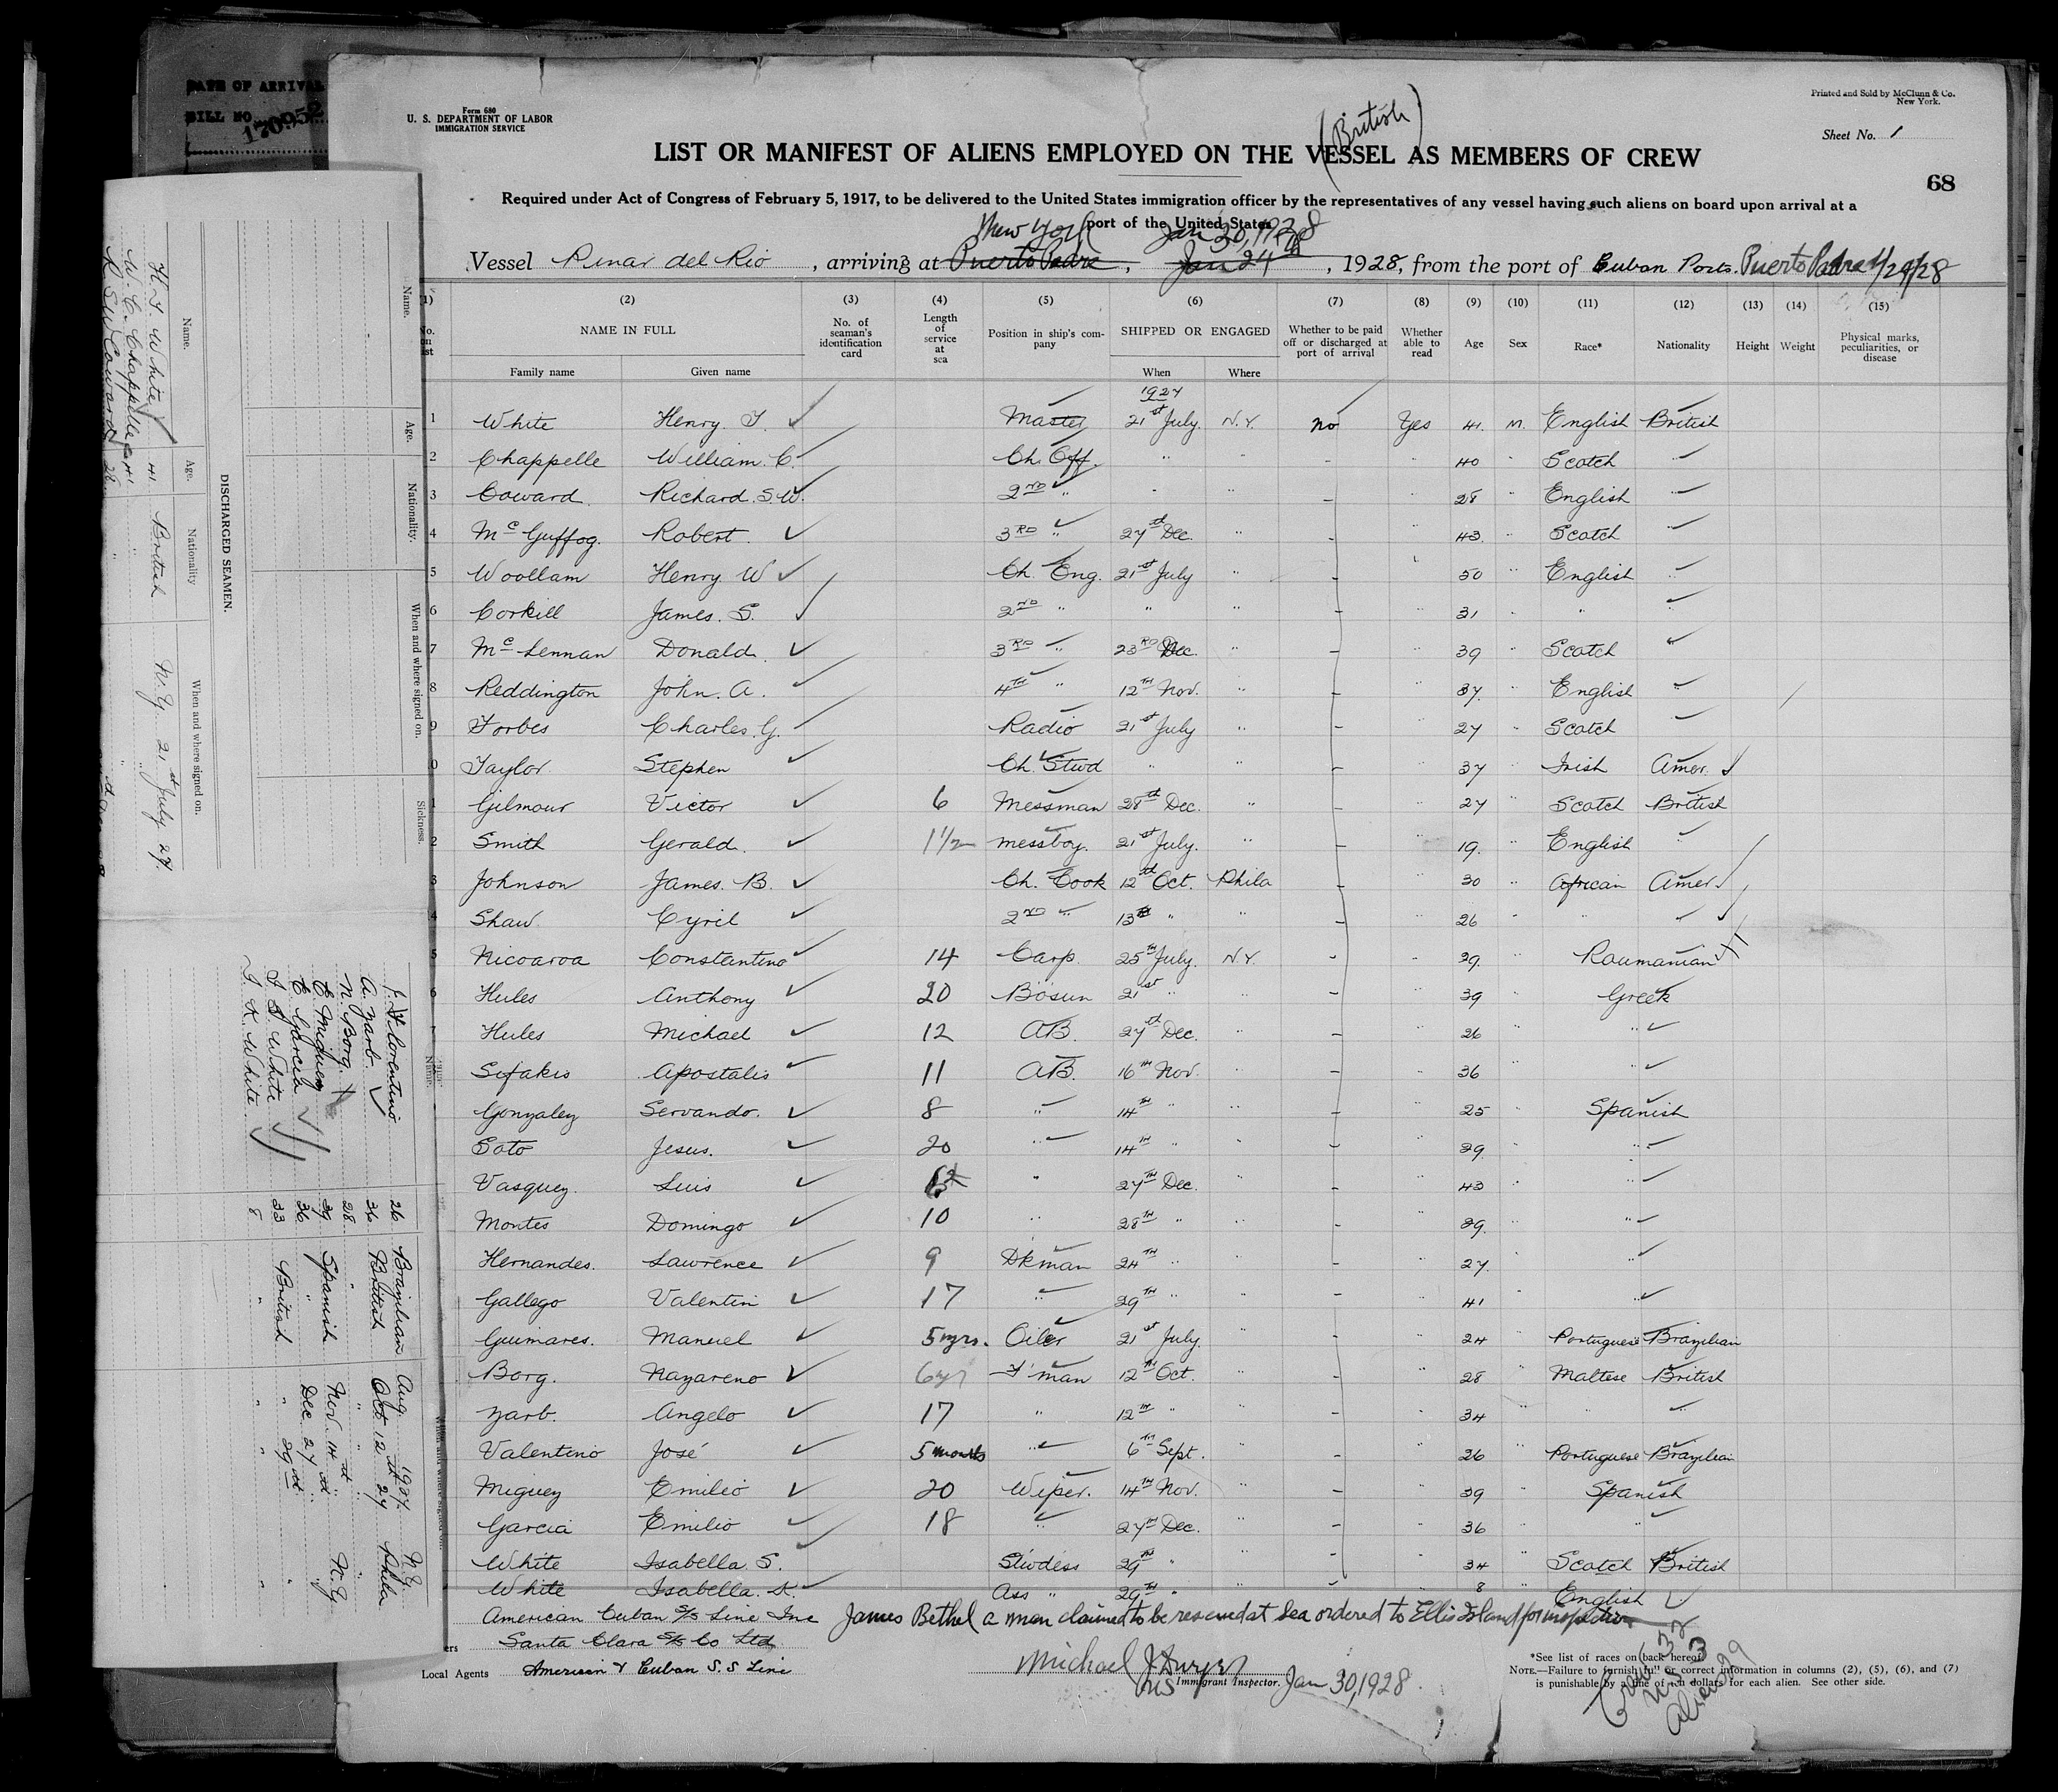 DATE OF ARRIVAL
BILL NO. 170952
Form 680
U. S. DEPARTMENT OF LABOR
IMMIGRATION SERVICE
Printed and Sold by McClunn & Co.
New York.
Sheet No. 1
(British)
LIST OR MANIFEST OF ALIENS EMPLOYED ON THE VESSEL AS MEMBERS OF CREW
68
Required under Act of Congress of February 5, 1917, to be delivered to the United States immigration officer by the representatives of any vessel having such aliens on board upon arrival at a
port of the United States
New York Jan 30, 1928
Vessel Pinar del Rio, arriving at Puerto Padre, Jan 24th, 1928, from the port of Cuban Ports. Puerto Padre 1/24/28
(1) (2) (3) (4) (5) (6) (7) (8) (9) (10) (11) (12) (13) (14) (15)
No. on list NAME IN FULL No. of seaman's identification card Length of service at sea Position in ship's company SHIPPED OR ENGAGED Whether to be paid off or discharged at port of arrival Whether able to read Age Sex Race* Nationality Height Weight Physical marks, peculiarities, or disease
Family name Given name When Where
1927
1 White Henry T. Master 21st July. N.Y. No Yes 41. M. English British
2 Chappelle William. C. Ch. Off. " " - " 40 " Scotch "
3 Coward. Richard. S.W. 2ND " " " - " 28 " English "
4 Mc Guffog. Robert. 3RD " 27th Dec. " - " 43. " Scotch "
5 Woollam Henry W Ch. Eng. 21st July " - " 50 " English "
6 Corkill James. S. 2ND " " " - " 31 " " "
7 Mc Lennan Donald. 3RD " 23RD Dec. " - " 39 " Scotch "
8 Reddington John. A. 4TH " 12TH Nov. " - " 37. " English "
9 Forbes Charles. G. Radio 21st July " - " 27 " Scotch "
0 Taylor Stephen Ch. Stwd " " - " 37 " Irish Amer.
1 Gilmour Victor 6 Messman 28th Dec. " - " 27 " Scotch British
2 Smith Gerald. 1 1/2 messboy. 21st July. " - " 19. " English "
3 Johnson James. B. Ch. Cook 12th Oct. Phila - " 30 " African Amer.
4 Shaw Cyril 2ND " 13th " " - " 26 " " "
5 Nicoaroa Constantino 14 Carp. 25TH July. N.Y. - " 29. " Roumanian
6 Hules Anthony 20 Bosun 21st " " - " 39 " Greek
7 Hules Michael 12 AB. 27th Dec. " - " 26 " "
Sifakis Apostalis 11 AB. 16TH Nov. " - " 36 "
Gonzalez Servando. 8 " 14TH " " - " 25 " Spanish
Soto Jesus. 20 " 14TH " " - " 29. "
Vasquez. Luis " 27TH Dec. " - " 43 " "
Montes Domingo 10 " 28TH " " - " 29. " "
Hernandes. Lawrence 9 Dkman 24TH " " - " 27. "
Gallego Valentin 17 " 29TH " " - " 41 " "
Guimares. Manuel 5 yrs. Oiler 21st July. " - " 24 " Portuguese Brazilian
Borg. Nazareno 6 yr F'man 12TH Oct. " - " 28 " Maltese British
Zarb. Angelo 17 " 12TH " " - " 34 " " "
Valentino José 5 months " 6TH Sept. " - " 26 " Portuguese Brazilian
Miguez Emilio 20 Wiper. 14TH Nov. " - " 39 " Spanish
Garcia Emilio 18 " 27TH Dec. " - " 36 " "
White Isabella. S. Stwdess 29TH " " - " 34 " Scotch British
White Isabella. K. Ass " 29TH " " - " 8 " English
American Cuban S/S Line Inc James Bethel a man claimed to be rescued at sea ordered to Ellis Island for inspection
Santa Clara S/S Co Ltd
Local Agents American & Cuban S.S Line
Michael J. Dwyer
US Immigrant Inspector. Jan 30, 1928.
Crew 32
U.S. 3
Aliens 29
*See list of races on back hereof.
NOTE.—Failure to furnish full or correct information in columns (2), (5), (6), and (7)
is punishable by a fine of ten dollars for each alien. See other side.
DISCHARGED SEAMEN.
Name. Age. Nationality When and where signed on.
H. T. White 41 British N.Y. 21st July 27.
W. C. Chappelle " "
R. S. W. Coward 28. "
Name. Age. Nationality. When and where signed on. Sickness.
J. Florentino 26 Brazilian Aug. 1927. N.Y.
A. Zarb. 34 British Oct 12th 27 Phila
N. Borg. 28 " " "
E. Miguez 39 Spanish Nov. 14th " N.Y
E. Garcia 36 " Dec 27th "
I. S. White 33 British " 29th "
I. K. White. 8 " " "